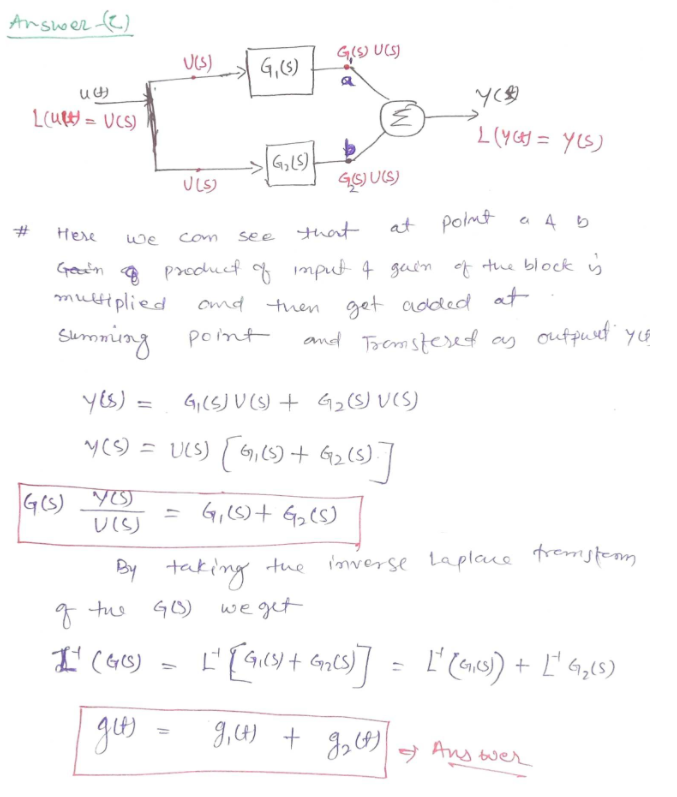 Answer-(2)
U(s) G₁(s) G₁(s) U(s)
a
u(t) y(t)
L(u(t) = U(s) Σ L(y(t) = Y(s)
b
G₂(s)
U(s) G₂(s) U(s)
# Here we can see that at point a & b
Gain of product of input & gain of the block is
multiplied and then get added at
summing point and Transfered as output y(t)
Y(s) = G₁(s) U(s) + G₂(s) U(s)
Y(s) = U(s) [G₁(s) + G₂(s)]
G(s) Y(s)/U(s) = G₁(s) + G₂(s)
By taking the inverse Laplace transform
of the G(s) we get
L⁻¹(G(s) = L⁻¹[G₁(s) + G₂(s)] = L⁻¹(G₁(s)) + L⁻¹ G₂(s)
g(t) = g₁(t) + g₂(t) ⇒ Answer